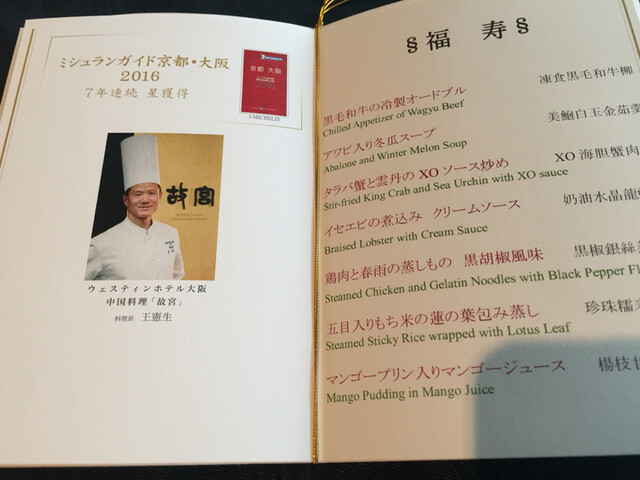 ミシュランガイド京都・大阪
2016
7年連続 星獲得
京都 大阪
2016
©MICHELIN
故宮
ウェスティンホテル大阪
中国料理「故宮」
料理長 王憲生
§ 福 寿 §
黒毛和牛の冷製オードブル 凍食黒毛和牛柳
Chilled Appetizer of Wagyu Beef
アワビ入り冬瓜スープ 美鮑白玉金茹
Abalone and Winter Melon Soup
タラバ蟹と雲丹の XO ソース炒め XO 海胆蟹肉
Stir-fried King Crab and Sea Urchin with XO sauce
イセエビの煮込み クリームソース 奶油水晶龍
Braised Lobster with Cream Sauce
鶏肉と春雨の蒸しもの 黒胡椒風味 黒椒銀絲
Steamed Chicken and Gelatin Noodles with Black Pepper Fl
五目入りもち米の蓮の葉包み蒸し 珍珠糯米
Steamed Sticky Rice wrapped with Lotus Leaf
マンゴープリン入りマンゴージュース 楊枝甘
Mango Pudding in Mango Juice